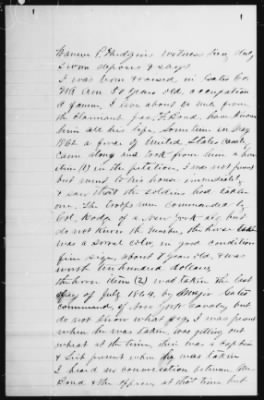 1
Warren P. Hudgins witness being duly
sworn deposes & says
I was born & raised in Gates Co.
am 50 years old, occupation
a farmer, I live about ½ mile from
the Claimant Jas. H. Bond, have known
him all his life, Sometime in May
1862 a force of United States cavalry
came along and took from him a horse
item (1) in the petition, I was not present
but went to his house immediately
& saw that the soldiers had taken
one, The troops were commanded by
Col. Dodge of a New York regt, but
do not know the number, the horse taken
was a sorrel color, in good condition
fine size, about 8 years old, & was
worth two hundred dollars
the horse item (2) was taken the last
of July 1864, by Major
command, of New York Cavalry but
do not know what regt, I was present
when he was taken, was getting out
wheat at the time, there was a Captain
& Lieut present when he was taken
I heard a conversation between Mr
Bond & the officers at that time but